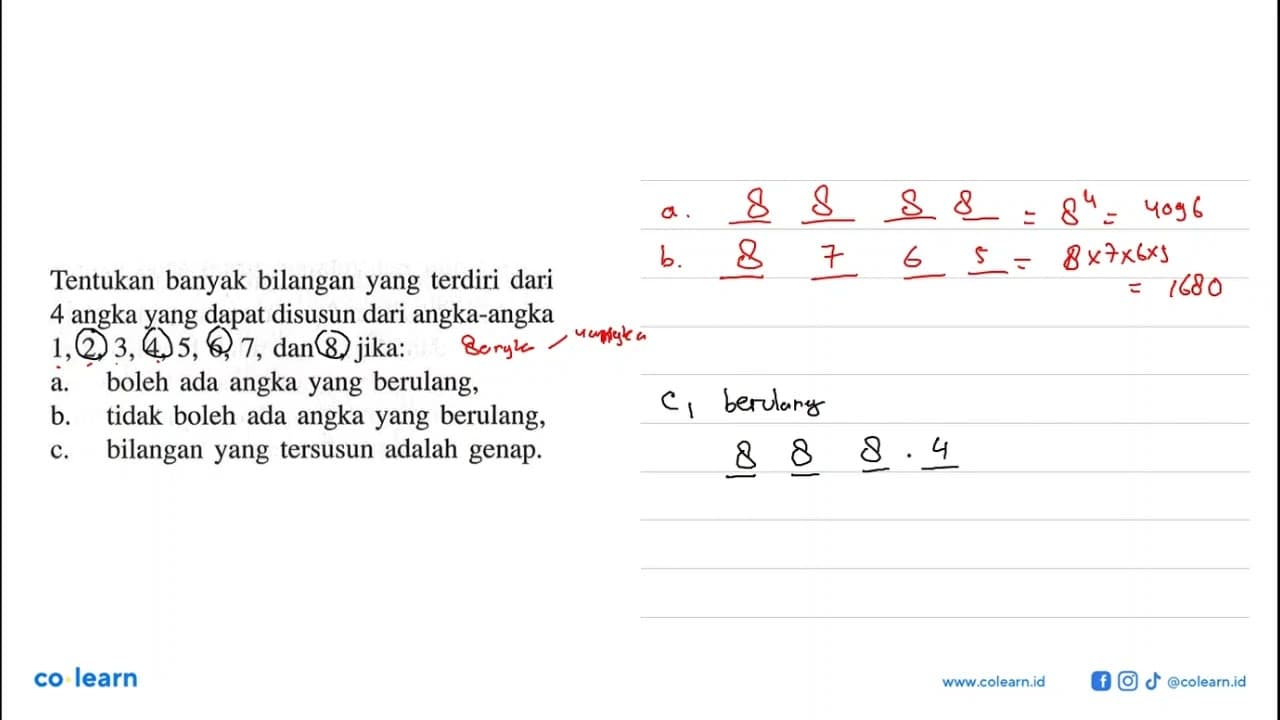 Tentukan banyak bilangan yang terdiri dari
4 angka yang dapat disusun dari angka-angka
1, 2, 3, 4, 5, 6, 7, dan 8, jika:
a. boleh ada angka yang berulang,
b. tidak boleh ada angka yang berulang,
c. bilangan yang tersusun adalah genap.
a. 8 8 8 8 = 8^4 = 4096
b. 8 7 6 5 = 8x7x6x5
= 1680
c, berulang
8 8 8 . 4
co learn
www.colearn.id
@colearn.id